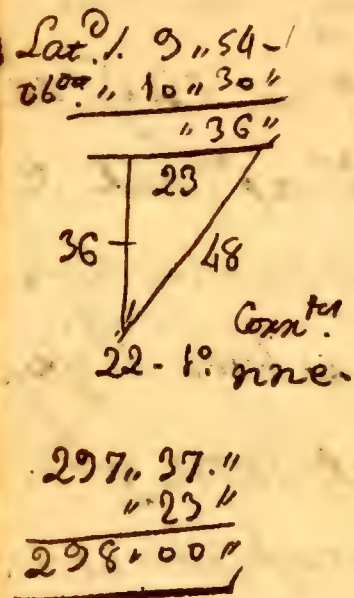 Lat.^D /. 9,,54-
ob^on ,, 10,,30,,
,,36,,
23
36 48
Corr^tes.
22. 1°. nne.
297,, 37.,,
,, 23 ,,
298,, 00,,